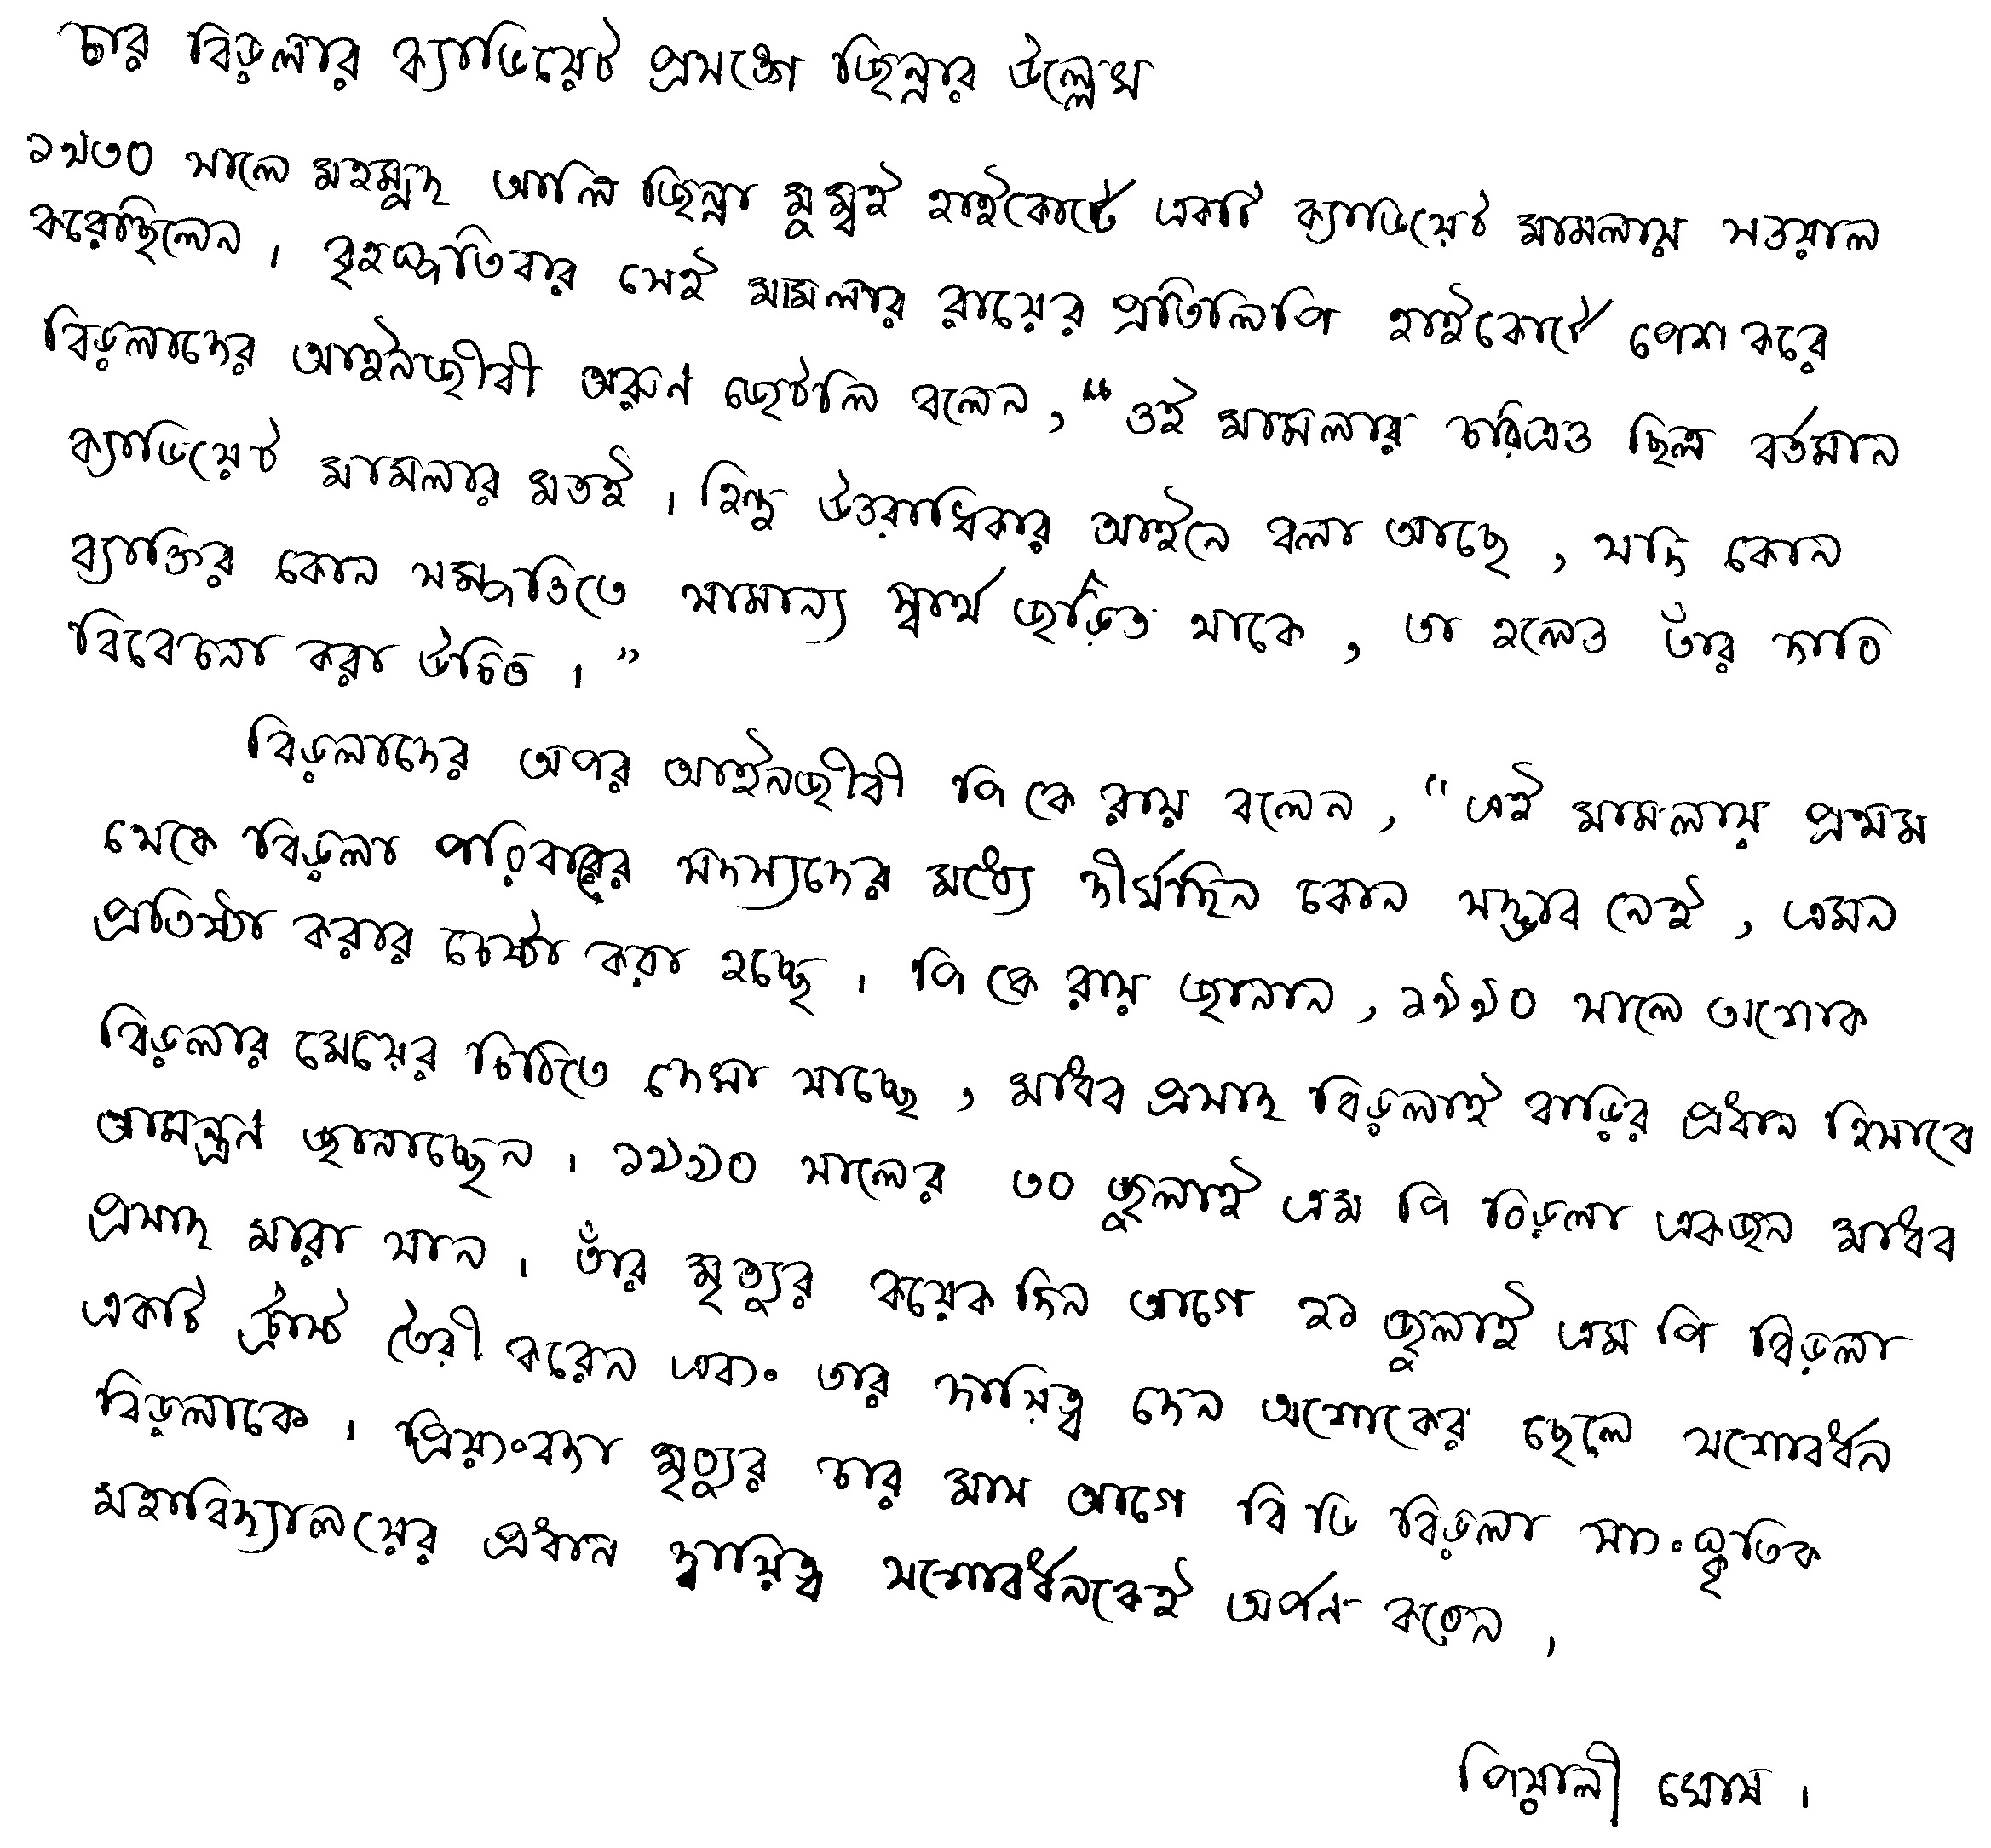 চার বিড়লার ক্যাভিয়েট প্রসঙ্গে জিন্নার উল্লেখ
১৯৩০ সালে মহম্মদ আলি জিন্না মুম্বই হাইকোর্টে একটি ক্যাভিয়েট মামলায় সওয়াল
করেছিলেন । বৃহস্পতিবার সেই মামলার রায়ের প্রতিলিপি হাইকোর্টে পেশ করে
বিড়লাদের আইনজীবী অরুণ জেটলি বলেন, “ওই মামলার চরিত্রও ছিল বর্তমান
ক্যাভিয়েট মামলার মতই । হিন্দু উত্তরাধিকার আইনে বলা আছে, যদি কোন
ব্যাক্তির কোন সম্পত্তিতে সামান্য স্বার্থ জড়িত থাকে, তা হলেও তাঁর দাবি
বিবেচনা করা উচিত ।”
বিড়লাদের অপর আইনজীবী পি কে রায় বলেন, “এই মামলায় প্রথম
থেকে বিড়লা পরিবারের সদস্যদের মধ্যে দীর্ঘদিন কোন সদ্ভাব নেই, এমন
প্রতিষ্ঠা করার চেষ্টা করা হচ্ছে । পি কে রায় জানান, ১৯৯০ সালে অশোক
বিড়লার মেয়ের চিঠিতে দেখা যাচ্ছে, মাধব প্রসাদ বিড়লাই বাড়ির প্রধান হিসাবে
আমন্ত্রণ জানাচ্ছেন । ১৯৯০ সালের ৩০ জুলাই এম পি বিড়লা একজন মাধব
প্রসাদ মারা যান । তাঁর মৃত্যুর কয়েক দিন আগে ২১ জুলাই এম পি বিড়লা
একটি ট্রাস্ট তৈরী করেন এবং তার দায়িত্ব দেন অশোকের ছেলে যশোবর্ধন
বিড়লাকে । প্রিয়ংবদা মৃত্যুর চার মাস আগে বি ডি বিড়লা সাংস্কৃতিক
মহাবিদ্যালয়ের প্রধান দ্বায়িত্ব যশোবর্ধনকেই অর্পন করেন ,
পিয়ালী ঘোষ ।